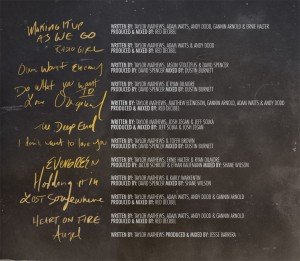 MAKING IT UP
AS WE GO
WRITTEN BY: TAYLOR MATHEWS, ADAM WATTS, ANDY DODD, GANNIN ARNOLD & ERNIE HALTER
PRODUCED & MIXED BY: RED DECIBEL
RADIO GIRL
WRITTEN BY: TAYLOR MATHEWS, ADAM WATTS & ANDY DODD
PRODUCED & MIXED BY: RED DECIBEL
Our Worst Enemy
WRITTEN BY: TAYLOR MATHEWS, JASON STOLTZFUS & DAVID SPENCER
PRODUCED BY: DAVID SPENCER MIXED BY: DUSTIN BURNETT
Do What you want
WRITTEN BY: TAYLOR MATHEWS & RYAN GILMORE
PRODUCED BY: DAVID SPENCER MIXED BY: DUSTIN BURNETT
TO
Love Obsessed
WRITTEN BY: TAYLOR MATHEWS, MATTHEW GANNIN ARNOLD, ADAM WATTS & ANDY DODD
PRODUCED & MIXED BY: RED DECIBEL
The Deep End
WRITTEN BY: TAYLOR MATHEWS, JOSH ZEGAN & JEFF SOJKA
PRODUCED & MIXED BY: JEFF SOJKA & JOSH ZEGAN
I don't want to love you
WRITTEN BY: TAYLOR MATHEWS & TOFER BROWN
PRODUCED BY: DAVID SPENCER MIXED BY: DUSTIN BURNETT
EVERGREEN
WRITTEN BY: TAYLOR MATHEWS, ERNIE HALTER & RYAN GILMORE
PRODUCED BY: JACOB SCHRODT & ETHAN KAUFMANN MIXED BY: SHANE WILSON
Holding it in
WRITTEN BY: TAYLOR MATHEWS & EMILY WARKENTIN
PRODUCED BY: DAVID SPENCER MIXED BY: SHANE WILSON
LOST Somewhere
WRITTEN BY: TAYLOR MATHEWS, ADAM WATTS, ANDY DODD & GANNIN ARNOLD
PRODUCED & MIXED BY: RED DECIBEL
HEART ON FIRE
WRITTEN BY: TAYLOR MATHEWS, ADAM WATTS, ANDY DODD & GANNIN ARNOLD
PRODUCED & MIXED BY: RED DECIBEL
Angel
WRITTEN BY: TAYLOR MATHEWS PRODUCED & MIXED BY: JESSE BARRERA